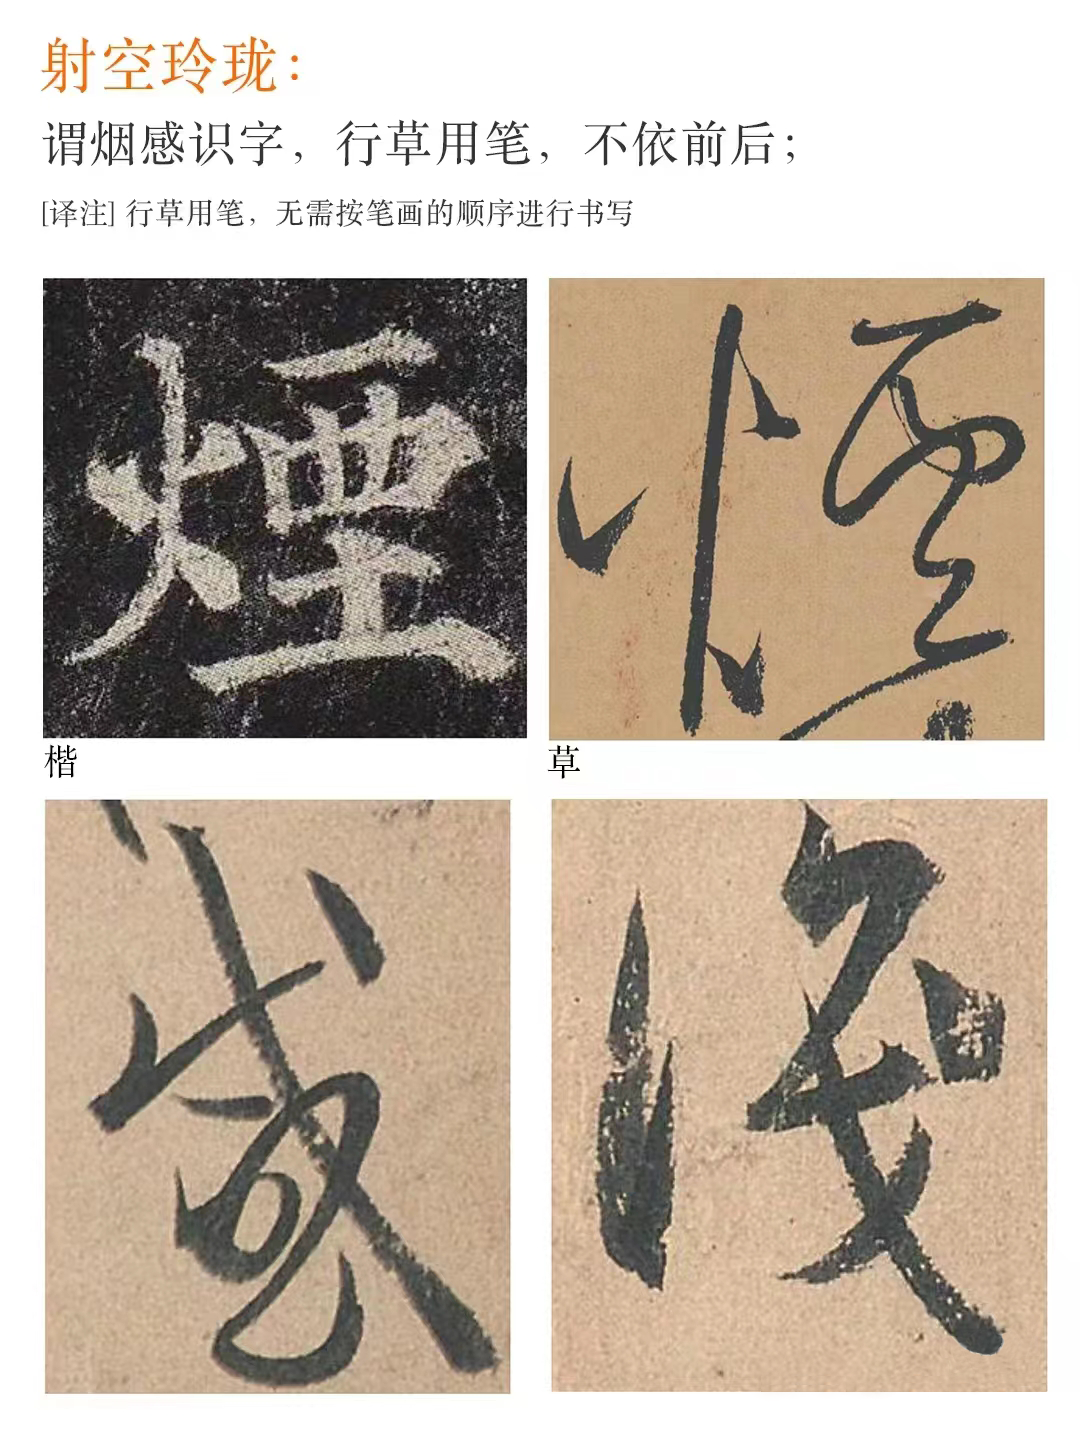 射空玲珑：
谓烟感识字，行草用笔，不依前后；
[译注] 行草用笔，无需按笔画的顺序进行书写
煙
煙
楷
草
感
識